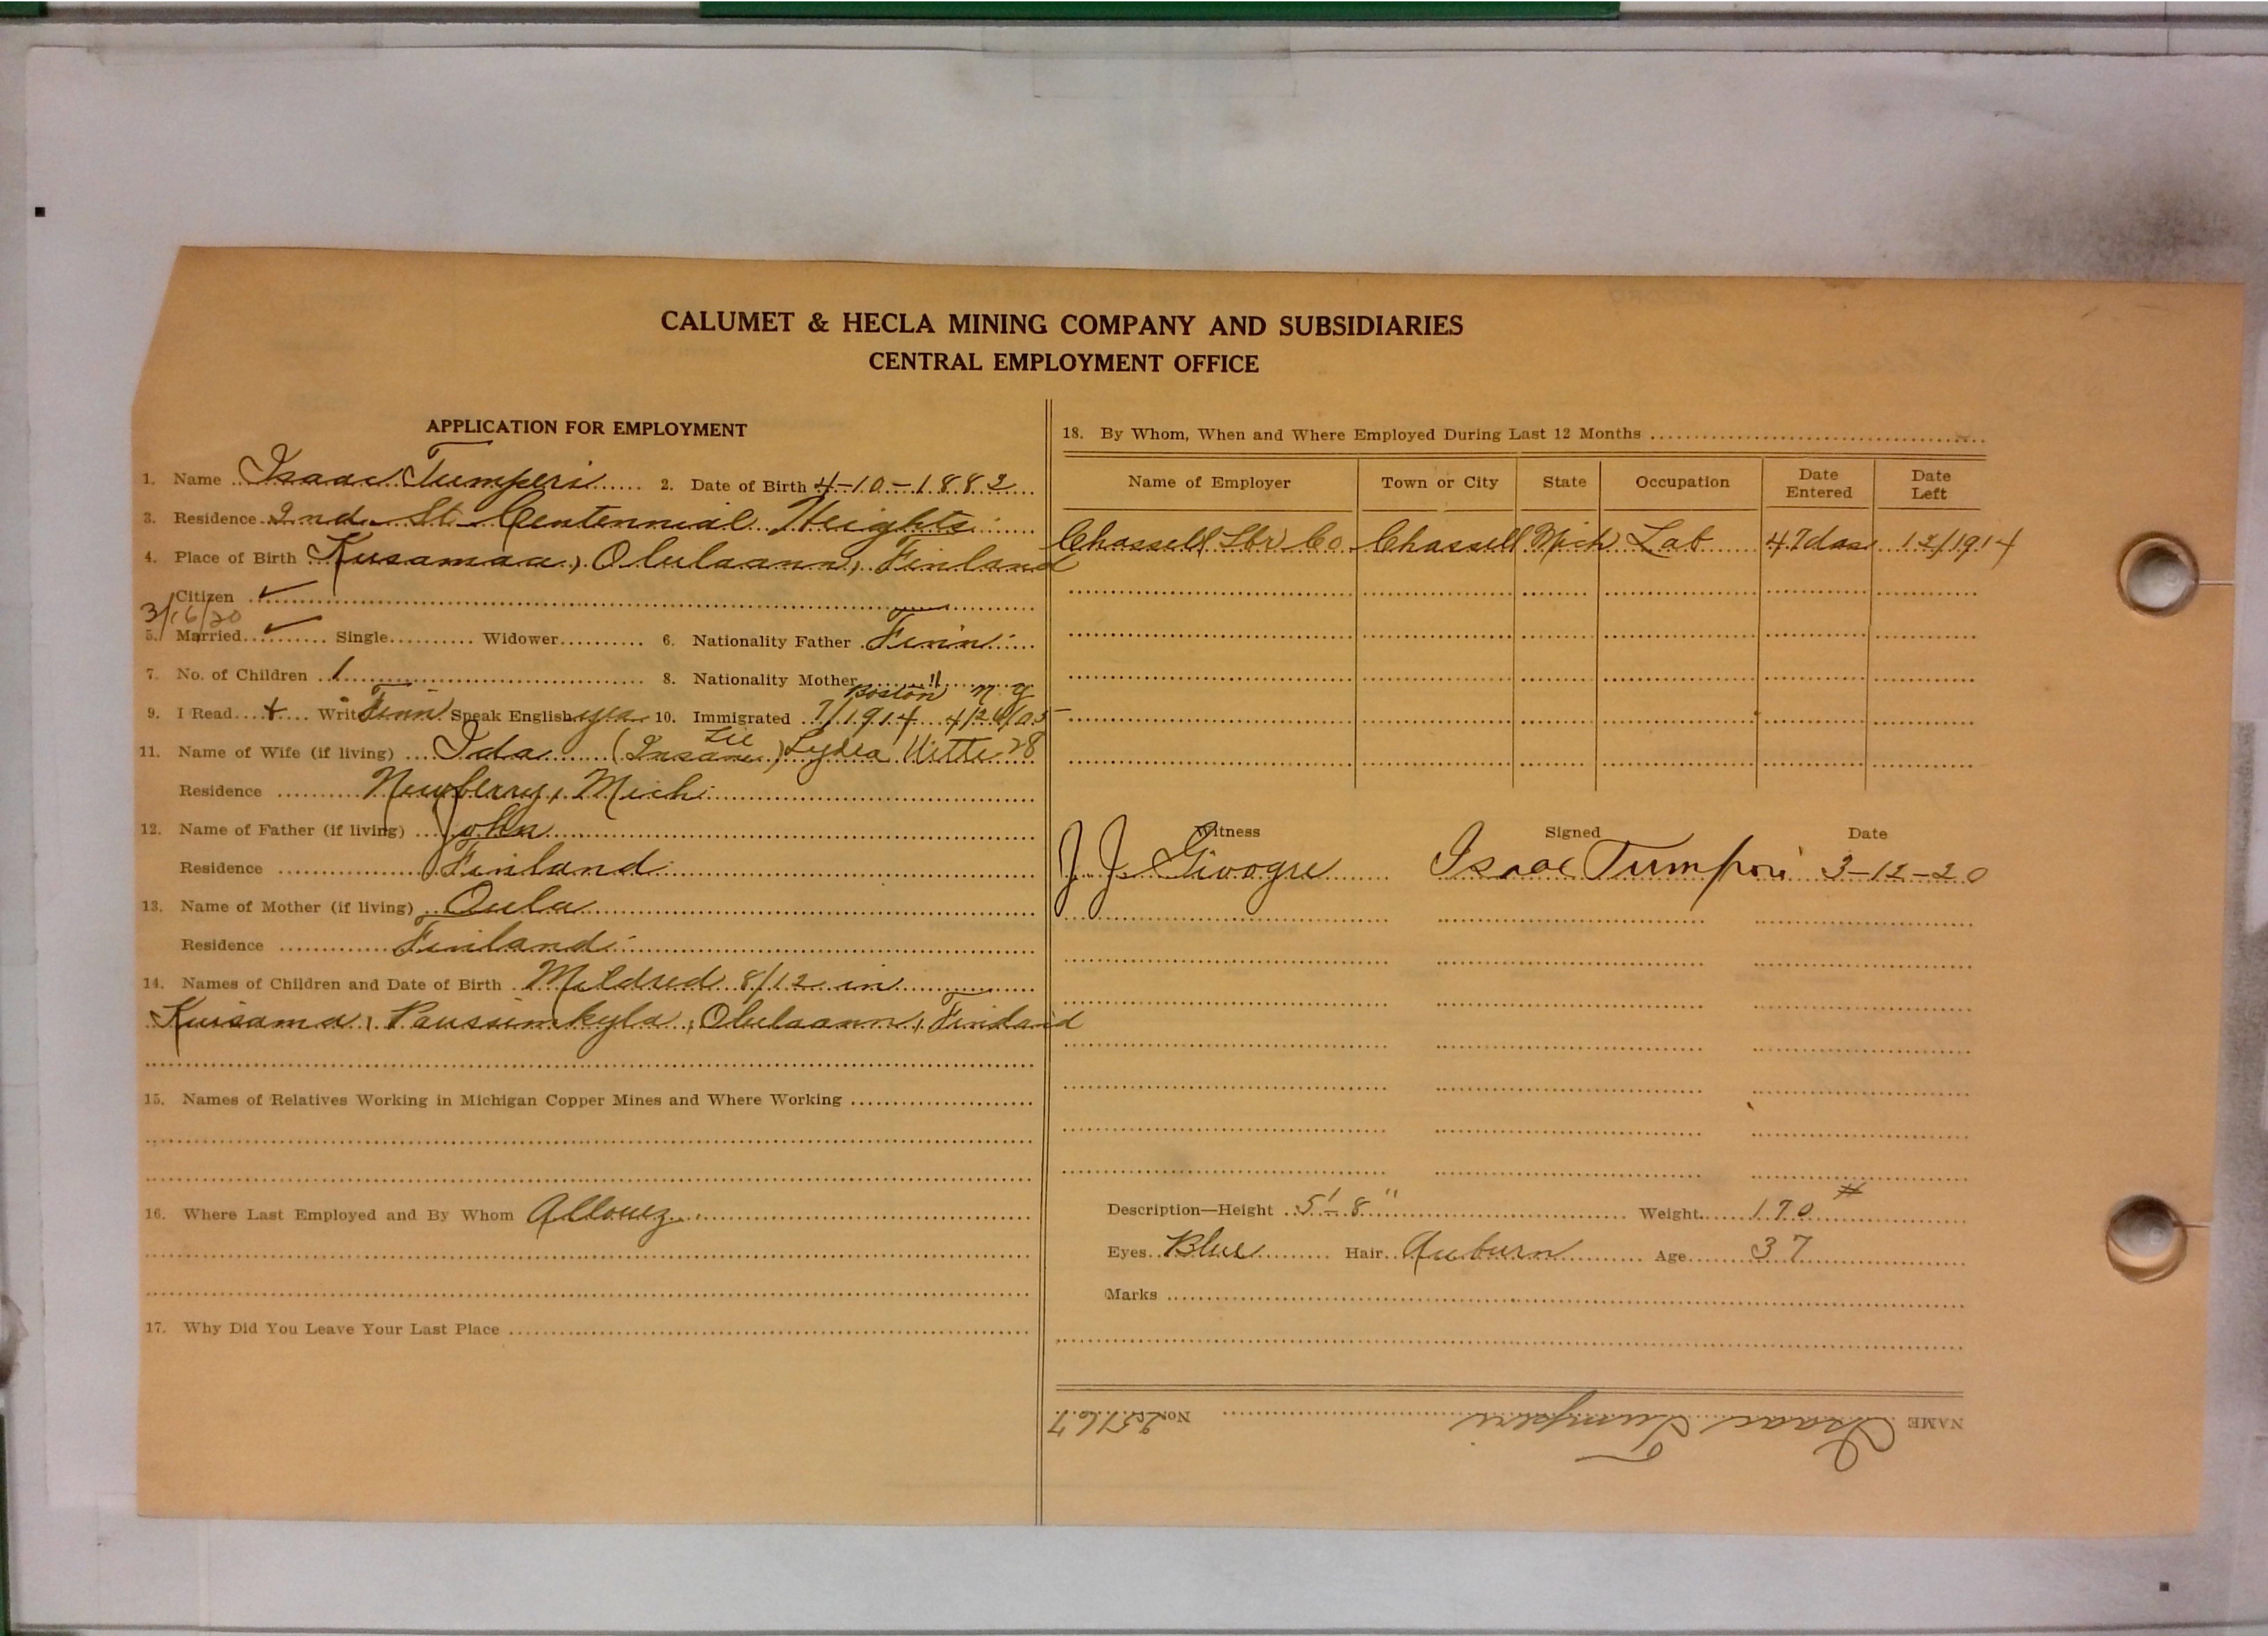 CALUMET & HECLA MINING COMPANY AND SUBSIDIARIES
CENTRAL EMPLOYMENT OFFICE
APPLICATION FOR EMPLOYMENT
1. Name Isaac Tumperi 2. Date of Birth 4-10-1882
3. Residence 2nd St Centennial Heights
4. Place of Birth Kusamaa, Olulaann, Finland
Citizen ✓
3/16/20
5. Married ✓ Single Widower 6. Nationality Father Finn
7. No. of Children 1 8. Nationality Mother "
Boston N.Y
9. I Read + Write Finn Speak English yes 10. Immigrated 7/1914 4/26/05
11. Name of Wife (if living) Ida (Insane) Lydia 28
Residence Newberry, Mich
12. Name of Father (if living) John
Residence Finland
13. Name of Mother (if living) Oula
Residence Finland
14. Names of Children and Date of Birth Mildred 8/12 in
Kuisama, Paussimkyla, Olulaann, Finland
15. Names of Relatives Working in Michigan Copper Mines and Where Working
16. Where Last Employed and By Whom Allouez
17. Why Did You Leave Your Last Place
18. By Whom, When and Where Employed During Last 12 Months
Name of Employer Town or City State Occupation Date Entered Date Left
Chassell Lbr Co Chassell Mich Lab 47 das 12/1914
Witness Signed Date
J. J. Isaac Tumperi 3-12-20
Description—Height 5'-8" Weight 170#
Eyes Blue Hair Auburn Age 37
Marks
NAME Isaac Tumperi No. 25167